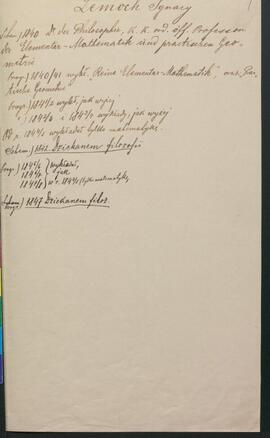 Lemoch Ignacy
Schem.) 1840 Dr der Philosophie, K. K. ord. öff. Professor
der Elementar-Mathematik und practischen Geo-
metrie
Progr.) 1840/41 wykł. "Reine Elementar-Mathematik", oraz "Prak-
tische Geometrie"
Progr. 1841/2 wykł. jak wyżej
") 1842/3 i 1843/4 wykłady, jak wyżej
Od r. 1844/5 wykładał tylko matematykę.
Schem.) 1842 Dziekanem filozofii
Progr.) wykładał,
jak
w r. (tylko matematykę)
Schem.) 1847 Dziekanem filos.
Progr.